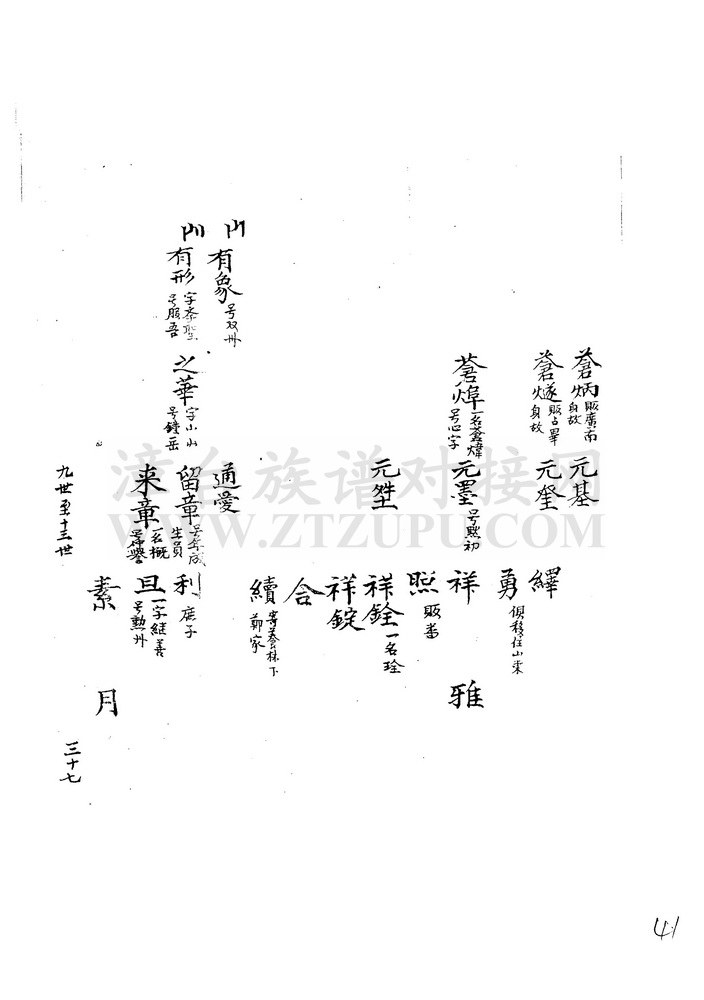 蒼炳
販廣南
身故
元基
繹
蒼燧
販占畢
身故
元奎
勇
俱移住山東
蒼焯
一名蒼煒
号心字
元墨
号熙初
祥
雅
照
販番
元𤯝
祥銓
一名琀
祥錠
合
續
寄養林下
鄭家
有象
号双卅
通愛
有形
字泰聖
号服吾
之華
字小山
号鍾岳
留章
生員
利
庶子
来章
一名概
旦
一字継善
号勲卅
素
月
九世至十三世
三十七
漳台族谱对接网
WWW.ZTZUPU.COM
41